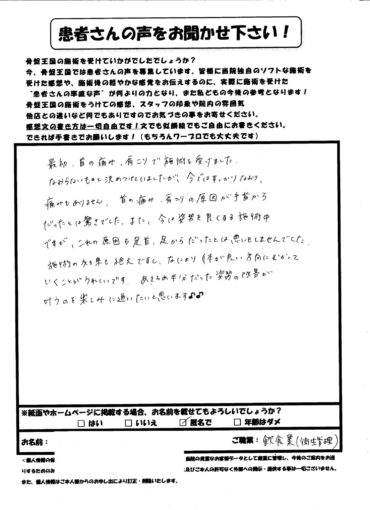 患者さんの声をお聞かせ下さい！
骨盤王国の施術を受けていかがでしたでしょうか？
今、骨盤王国では患者さんの声を募集しています。皆様に当院独自のソフトな施術を
受けた感想や、施術後の軽やかな感覚をお伝えするのに、実際に施術を受けた
“患者さんの率直な声”が何よりの力となり、また私どもの今後の参考となります！
骨盤王国の施術をうけての感想、スタッフの印象や院内の雰囲気
他店との違いなど何でもありですのでお気づきの事をお寄せください。
感想文の書き方は一切自由です！文でも似顔絵でもご自由にお書きください。
できれば手書きでお願いします！（もちろんワープロでも大丈夫です）
最初、首の痛み、肩こりで施術を受けました。
なおらないものと決めつけていましたが、今ではすっかりなおり、
痛みもありません。首の痛み、肩こりの原因が手首から
だったとは驚きでした。また、今は姿勢を良くする施術中
ですが、これの原因も足首、足からだったとは思いもしませんでした。
施術の効果も絶大ですし、なにより体が良い方向にむかって
いくことがうれしいです。あきらめ半分だった姿勢の改善が
叶うのを楽しみに通いたいと思います♪♪
※紙面やホームページに掲載する場合、お名前を載せてもよろしいでしょうか？
□ はい □ いいえ ☑ 匿名で □ 年齢はダメ
お名前： ご職業：飲食業(衛生管理)
＜個人情報の 当院の貴重なお客様データとして厳重に管理し、今後のご案内をお送
りするための 及びご本人の許可なく外部への開示・提供する事は一切ございません。
また、個人情報はご本人様からのお申し出により訂正・削除いたします。